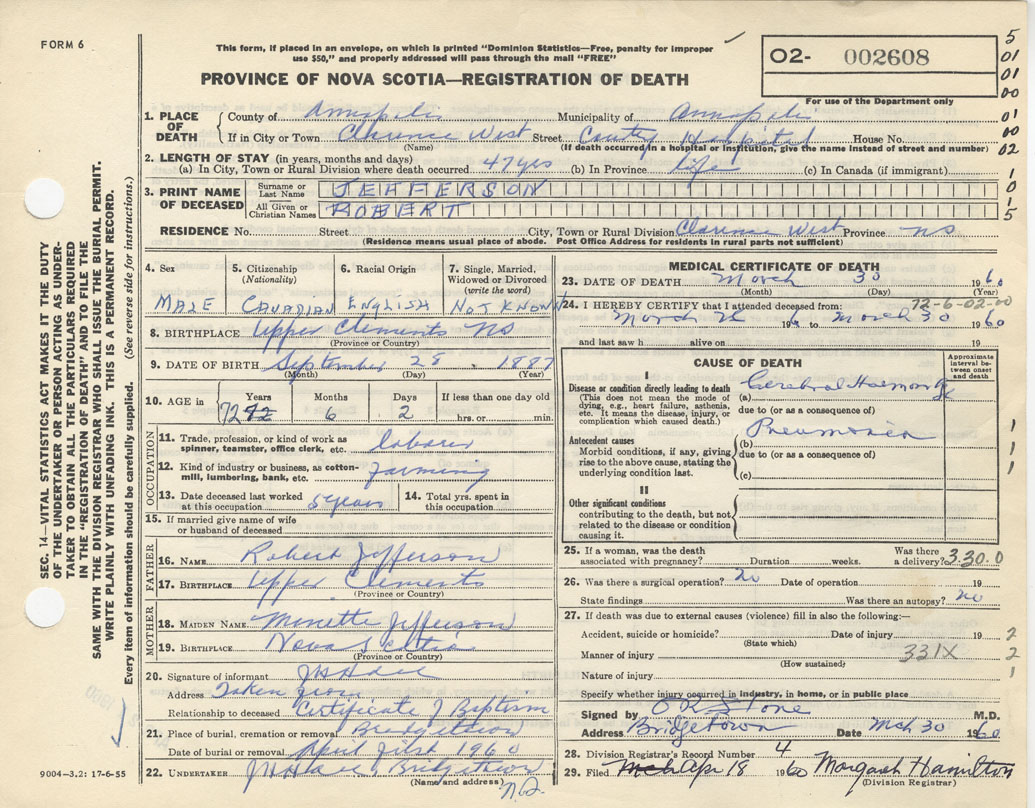 FORM 6
This form, if placed in an envelope, on which is printed "Dominion Statistics—Free, penalty for improper
use $50," and properly addressed will pass through the mail "FREE"
PROVINCE OF NOVA SCOTIA—REGISTRATION OF DEATH
O2- 002608
For use of the Department only
5
01
01
00
01
00
02
1
0
1
5
1. PLACE OF DEATH
County of Annapolis Municipality of Annapolis
If in City or Town Clarence West Street County Hospital House No.
(Name) (If death occurred in a hospital or institution, give the name instead of street and number)
2. LENGTH OF STAY (in years, months and days)
(a) In City, Town or Rural Division where death occurred. 47 yrs (b) In Province life (c) In Canada (if immigrant)
3. PRINT NAME OF DECEASED
Surname or Last Name JEFFERSON
All Given or Christian Names ROBERT
RESIDENCE No. Street City, Town or Rural Division Clarence West Province NS
(Residence means usual place of abode. Post Office Address for residents in rural parts not sufficient)
4. Sex MALE
5. Citizenship (Nationality) CANADIAN
6. Racial Origin ENGLISH
7. Single, Married, Widowed or Divorced (write the word) NOT KNOWN
8. BIRTHPLACE Upper Clements NS
(Province or Country)
9. DATE OF BIRTH September 28 1887
(Month) (Day) (Year)
10. AGE in Years 72 Months 6 Days 2 If less than one day old hrs. or min.
OCCUPATION
11. Trade, profession, or kind of work as spinner, teamster, office clerk, etc. laborer
12. Kind of industry or business, as cotton-mill, lumbering, bank, etc. farming
13. Date deceased last worked at this occupation 5 years
14. Total yrs. spent in this occupation
15. If married give name of wife or husband of deceased
FATHER
16. NAME Robert Jefferson
17. BIRTHPLACE Upper Clements
(Province or Country)
MOTHER
18. MAIDEN NAME Minetta Jefferson
19. BIRTHPLACE Nova Scotia
(Province or Country)
20. Signature of informant
Address Taken from
Relationship to deceased Certificate of Baptism
21. Place of burial, cremation or removal Bridgetown
Date of burial or removal April first 1960
22. UNDERTAKER Bridgetown
(Name and address) N.S.
MEDICAL CERTIFICATE OF DEATH
23. DATE OF DEATH March 30 1960
(Month) (Day) (Year)
72-6-02-00
24. I HEREBY CERTIFY that I attended deceased from:
March 19 to March 30 1960
and last saw h alive on 19
CAUSE OF DEATH
Approximate interval between onset and death
I
Disease or condition directly leading to death
(This does not mean the mode of dying, e.g., heart failure, asthenia, etc. It means the disease, injury, or complication which caused death.)
(a) Cerebral Hemorrhage
due to (or as a consequence of)
Antecedent causes
Morbid conditions, if any, giving rise to the above cause, stating the underlying condition last.
(b) Pneumonia
due to (or as a consequence of)
(c)
1
1
1
II
Other significant conditions
contributing to the death, but not related to the disease or condition causing it.
25. If a woman, was the death associated with pregnancy? Duration weeks. Was there a delivery? 330.0
26. Was there a surgical operation? No Date of operation 19
State findings Was there an autopsy? No
27. If death was due to external causes (violence) fill in also the following:—
Accident, suicide or homicide? Date of injury 19 2
(State which)
Manner of injury 331X 2
(How sustained)
Nature of injury 1
Specify whether injury occurred in industry, in home, or in public place
Signed by Stone M.D.
Address Bridgetown Date Mch 30 1960
28. Division Registrar's Record Number 4
29. Filed Mch Apr 18 1960 Margaret Hamilton
(Division Registrar)
SEC. 14—VITAL STATISTICS ACT MAKES IT THE DUTY
OF THE UNDERTAKER OR PERSON ACTING AS UNDER-
TAKER TO OBTAIN ALL THE PARTICULARS REQUIRED
IN THE "REGISTRATION OF DEATH" AND TO FILE THE
SAME WITH THE DIVISION REGISTRAR WHO SHALL ISSUE THE BURIAL PERMIT.
WRITE PLAINLY WITH UNFADING INK. THIS IS A PERMANENT RECORD.
Every item of information should be carefully supplied. (See reverse side for instructions.)
9004—3.2: 17-6-55